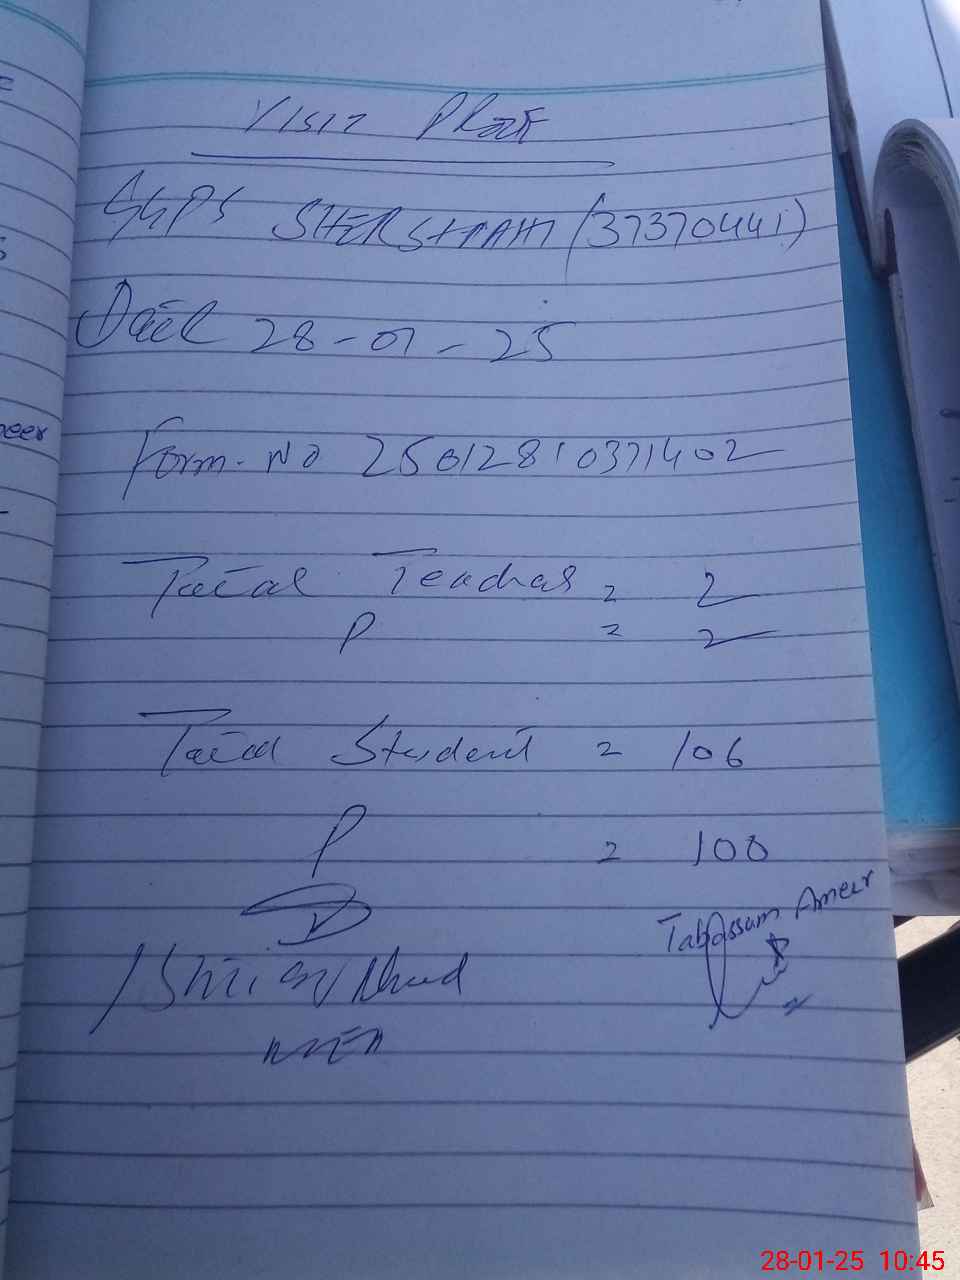 VISIT PROOF
GGPS SHERSHAH (37370441)
Date 28-01-25
Form. No 25012810371402
Total Teachers = 2
P = 2
Total Student = 106
P = 100
Tabassum Ameer
Ahmed
neer
28-01-25 10:45